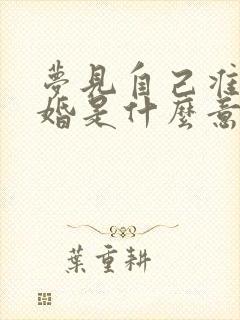 夢見自己準
婚是什麼意
葉重耕